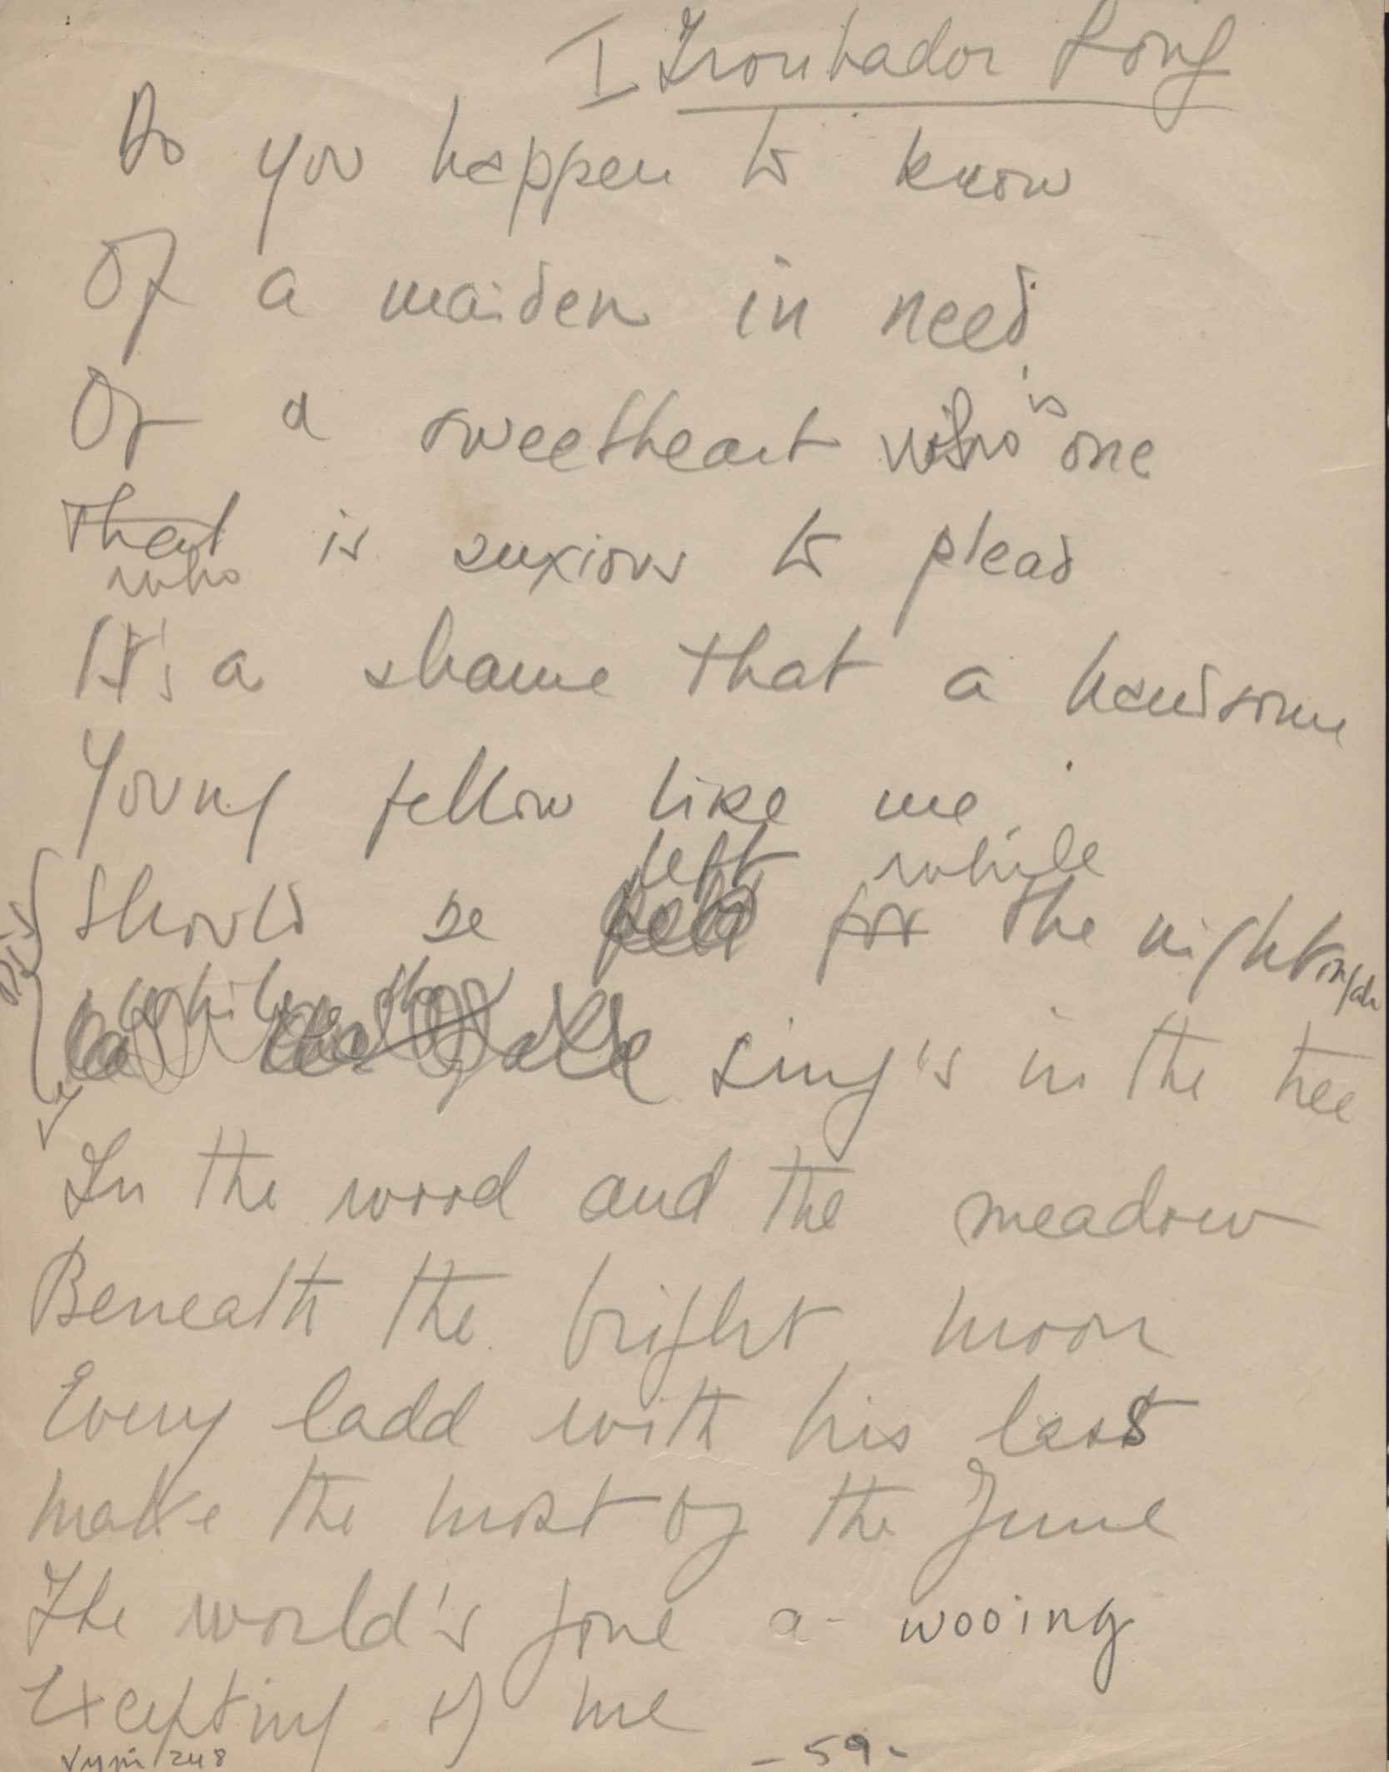 I Troubador Song
Do you happen to know
Of a maiden in need
Or a sweetheart who is one
That is anxious to plead
who
It's a shame that a handsome
Young fellow like me
left while
Should be for the nightingale
while the
sing's in the tree
In the wood and the meadow
Beneath the bright moon
Every ladd with his lass
make the most of the June
The world's gone a-wooing
Excepting of me
248
-59-